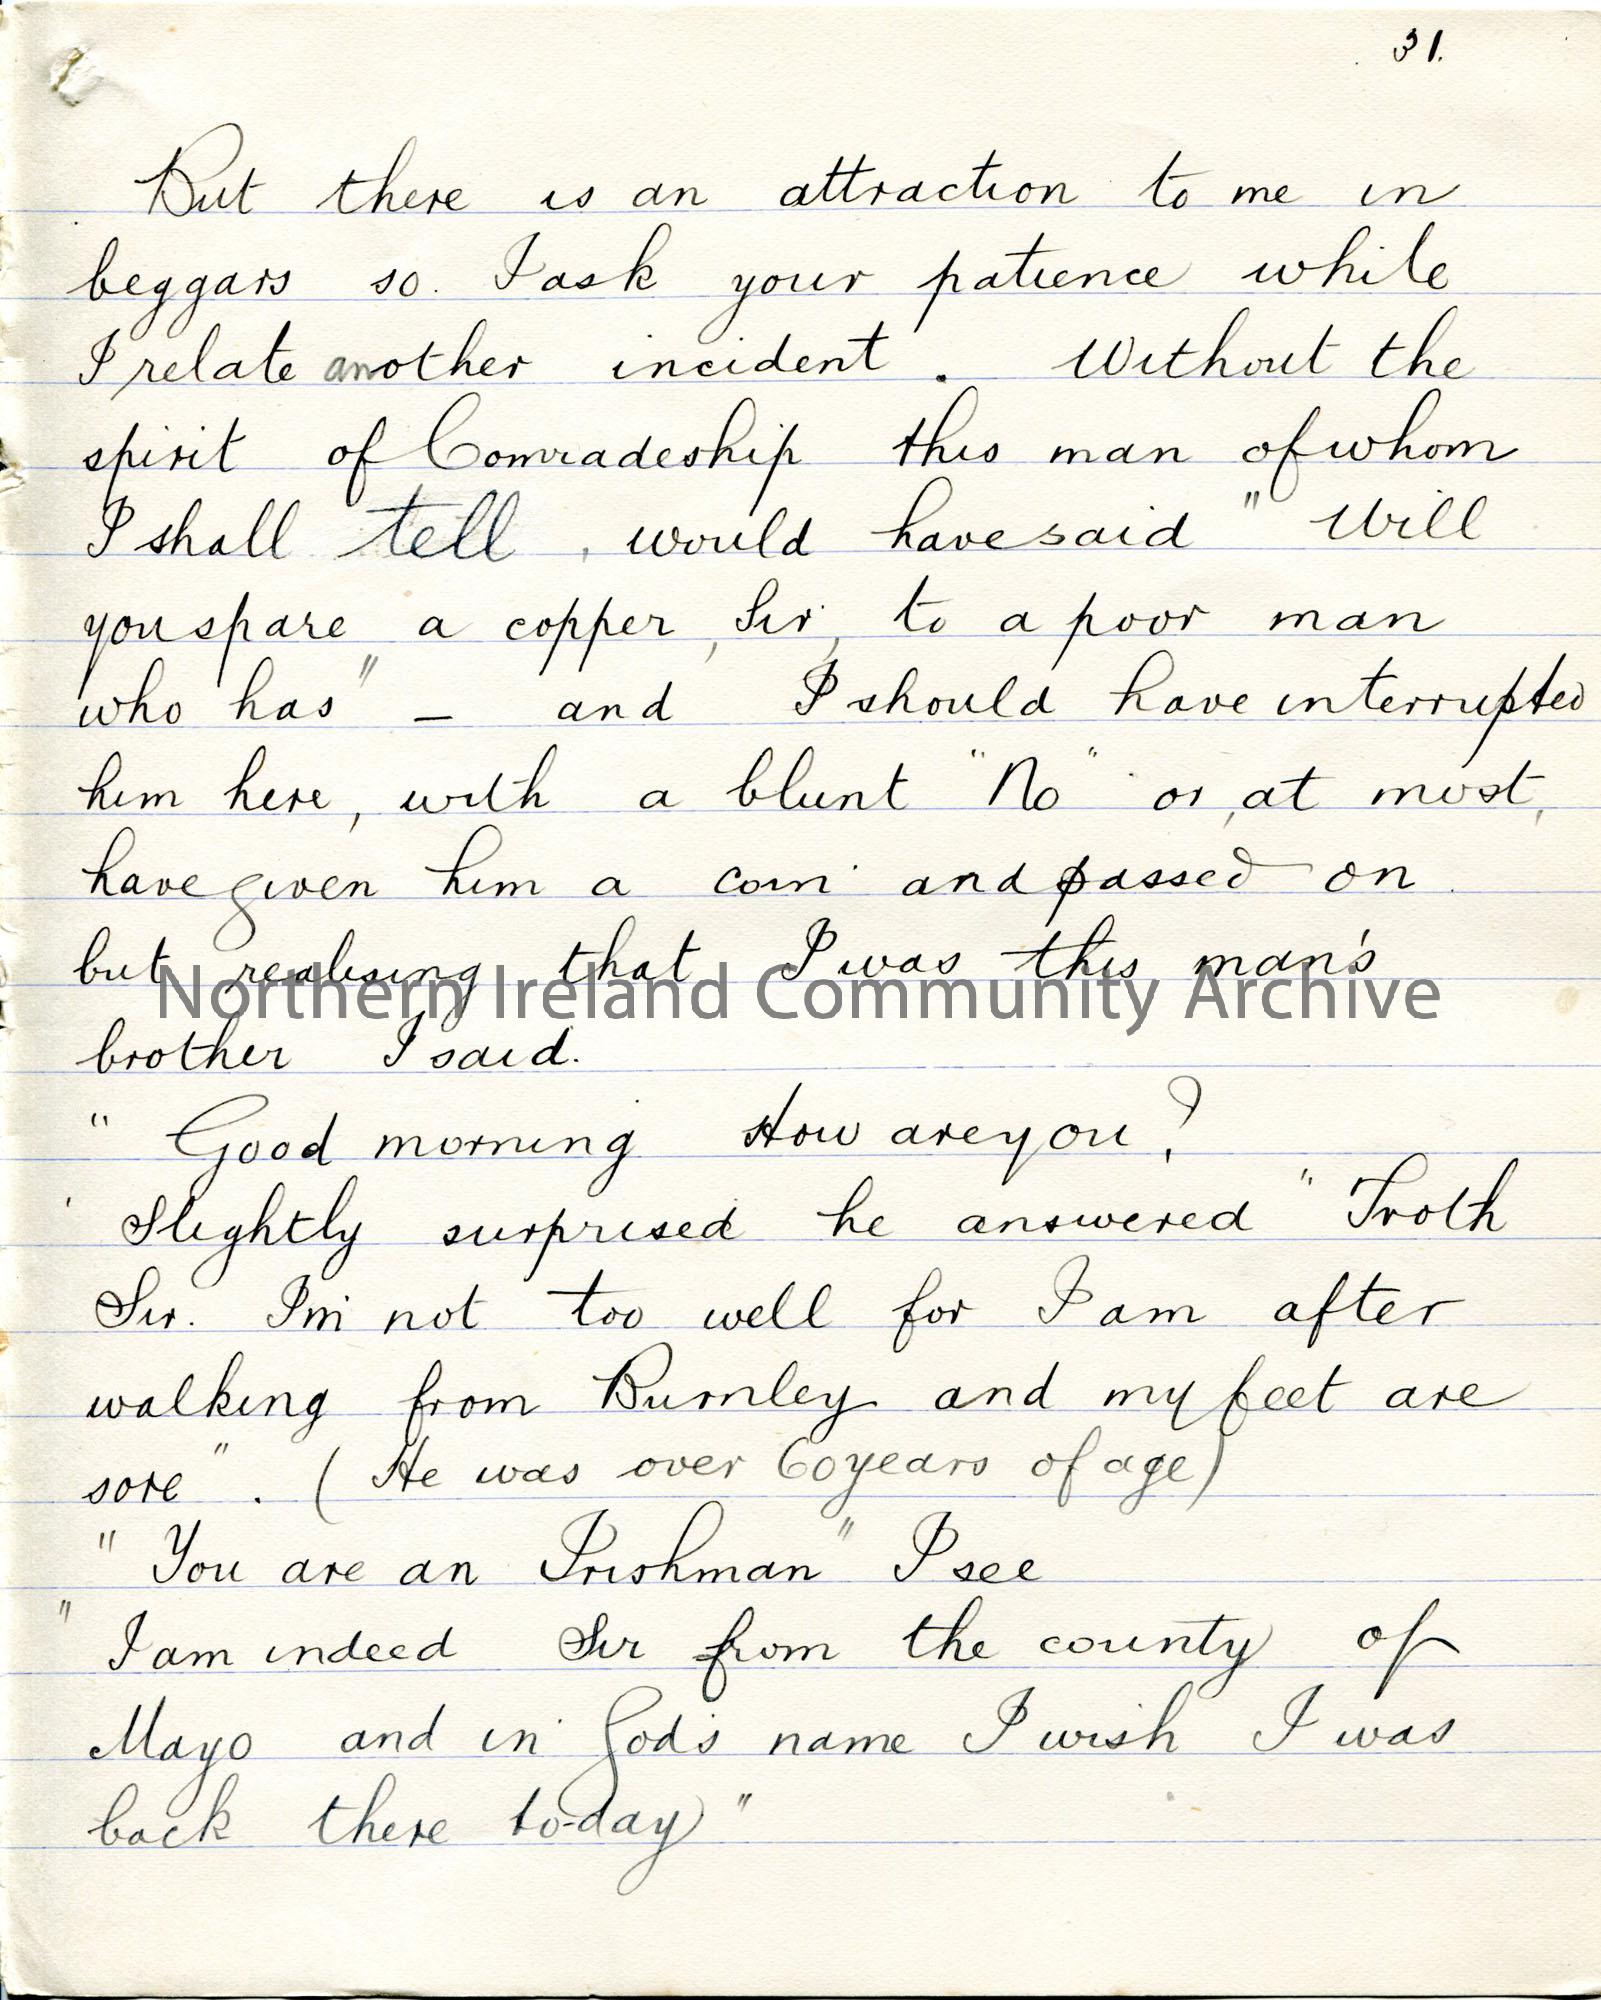 31.
But there is an attraction to me in
beggars so. I ask your patience while
I relate another incident. Without the
spirit of Comradeship this man of whom
I shall tell, would have said " Will
you spare a copper, Sir, to a poor man
who has" – and I should have interrupted
him here, with a blunt "No" or, at most,
have given him a coin and passed on.
but realising that I was this man's
Northern Ireland Community Archive
brother I said.
" Good morning How are you?
' Slightly surprised he answered " Troth
Sir. I'm not too well for I am after
walking from Burnley and my feet are
sore". (He was over 60 years of age)
" You are an Irishman" I see
" I am indeed Sir from the county of
Mayo and in God's name I wish I was
back there to-day"